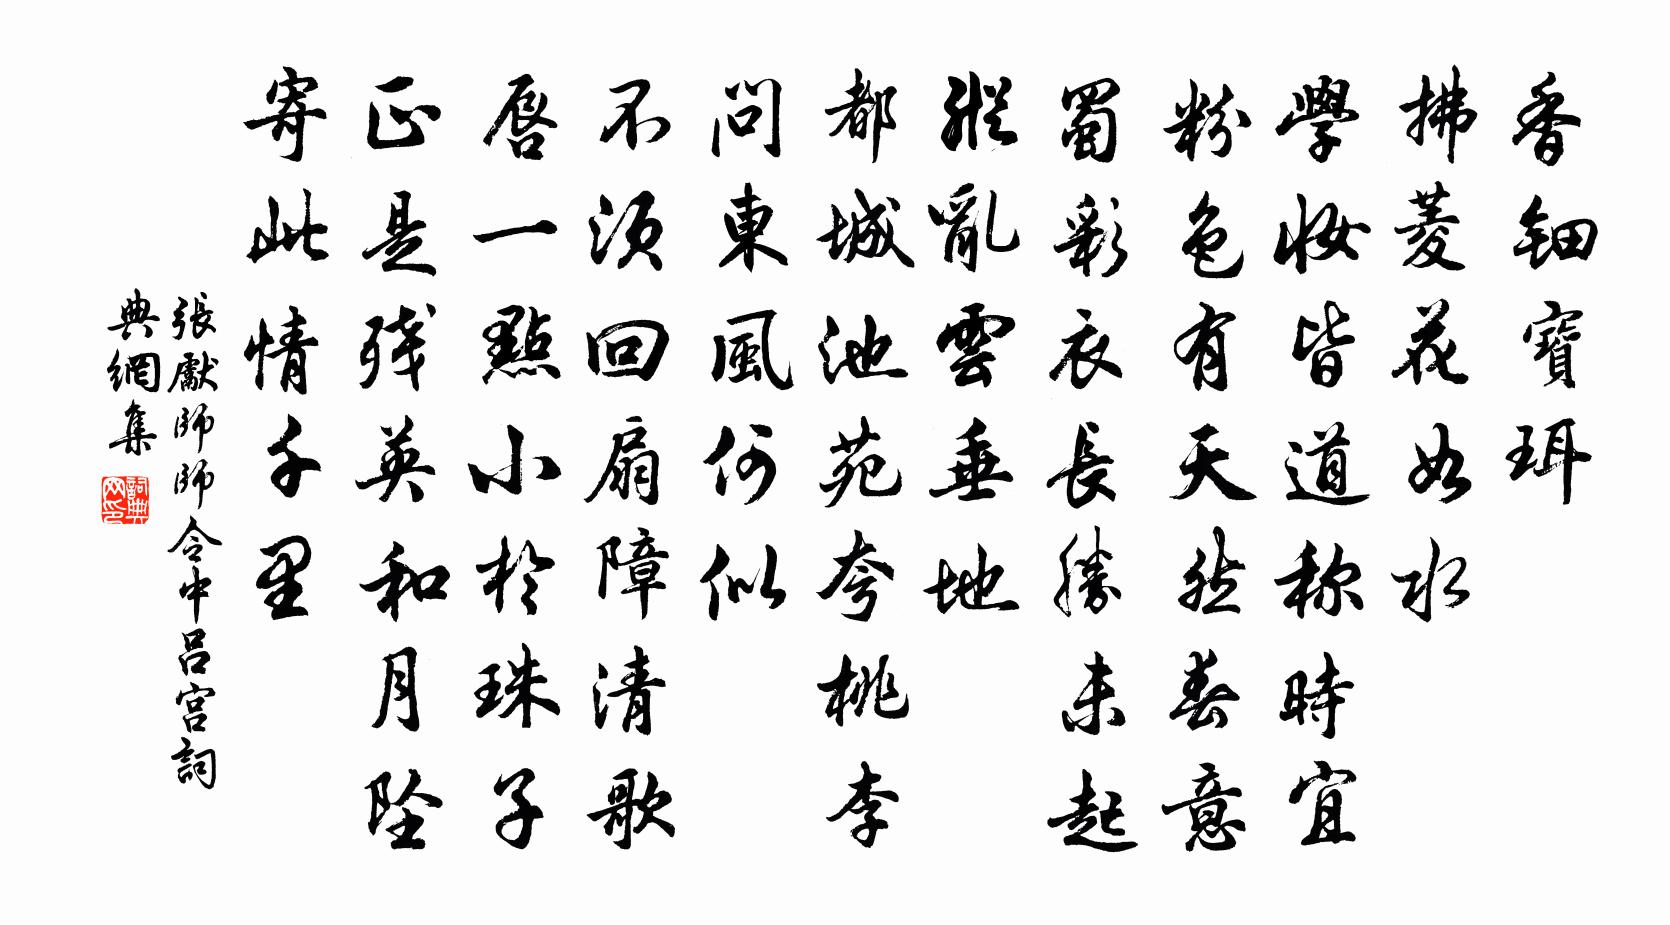 香鈿寶珥
拂菱花如水
學妝皆道称時宜
粉色有天然春意
蜀彩衣長勝未起
縱亂雲垂地
都城池苑夸桃李
問東風何似
不須回扇障清歌
唇一點小於珠子
正是残英和月坠
寄此情千里
張獻師師令中呂宮詞
典網集
詞典网印